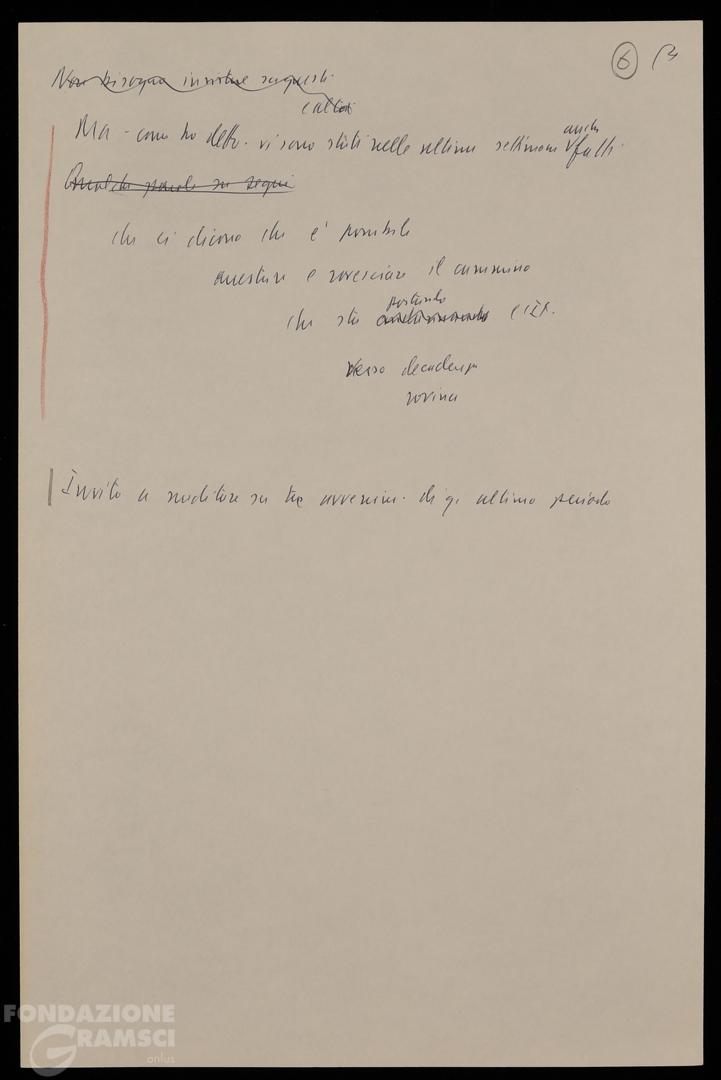 6
Non bisogna insistere su questi
Ma - come ho detto - vi sono stati nelle ultime settimane anche fatti
Qualche parola su segni
che ci dicono che e' possibile
arrestare e rovesciare il cammino
che sta portando l'It.
verso decadenza
rovina
Invito a meditare su tre avvenim. di q. ultimo periodo
FONDAZIONE
GRAMSCI
onlus